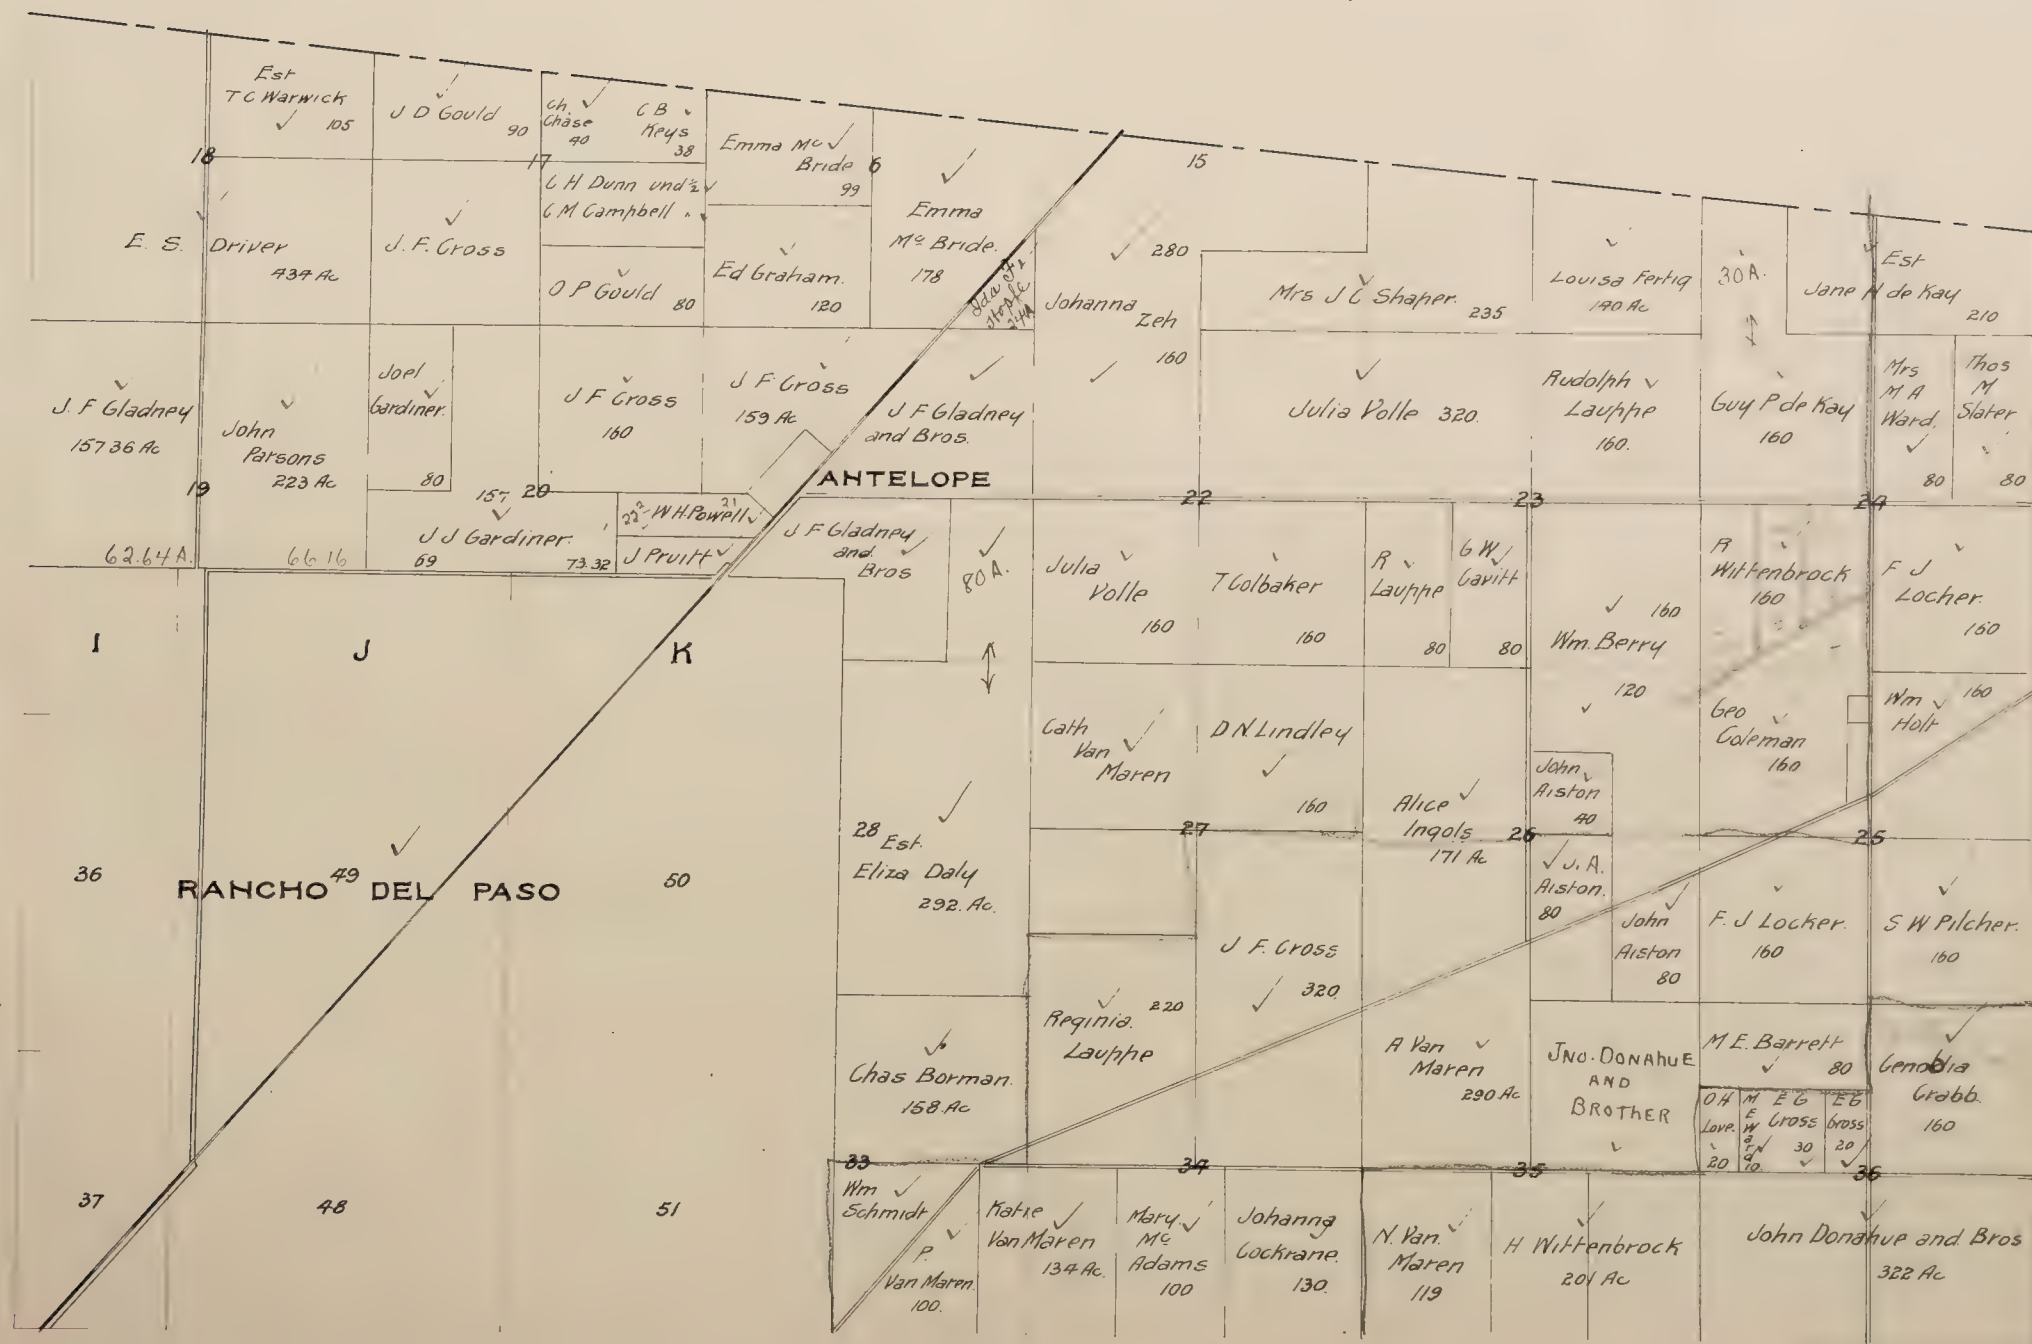 Est
T C Warwick
105
J D Gould
90
Ch.
Chase
40
C B
Keys
38
Emma Mc
Bride
99
18
17
6
15
C H Dunn und ½
C M Campbell "
E. S. Driver
434 Ac
J. F. Cross
O P Gould 80
Ed Graham.
120
Emma
Mc Bride.
178
Ida F.
24A
280
Johanna
Zeh
160
Mrs J C Shaper.
235
Louisa Fertig
140 Ac
30 A.
Est
Jane H de Kay
210
J. F Gladney
157 36 Ac
John
Parsons
223 Ac
Joel
Gardiner.
80
J F Cross
160
J F Cross
159 Ac
J F Gladney
and Bros.
Julia Volle 320.
Rudolph
Lauppe
160.
Guy P de Kay
160
Mrs
M A
Ward.
80
Thos
M
Slater
80
ANTELOPE
19
157
20
21
22
23
24
62.64 A.
66 16
J J Gardiner.
69
73.32
22² W H. Powell
J Pruitt
J F Gladney
and
Bros
80 A.
Julia
Volle
160
T Colbaker
160
R
Lauppe
80
G W
Cavitt
80
160
Wm. Berry
120
R
Wittenbrock
160
F J
Locher.
160
I
J
K
Cath
Van
Maren
D N Lindley
160
Alice
Ingols
171 Ac
John
Aiston
40
Geo
Coleman
160
Wm
Holt
160
28
Est.
Eliza Daly
292. Ac.
27
26
25
36
49
50
RANCHO DEL PASO
J. A.
Aiston.
80
John
Aiston
80
F. J Locker.
160
S W Pilcher.
160
J F. Cross
320
Reginia.
Lauppe
220
Chas Borman.
158. Ac
A Van
Maren
290 Ac
JNO. DONAHUE
AND
BROTHER
M E. Barrett
80
Genobia
Crabb.
160
O H
Love.
20
M
E
W
a
r
d
10.
E G
Cross
30
E G
Gross
20
33
34
35
36
37
48
51
Wm
Schmidt
P.
Van Maren.
100.
Katie
Van Maren
134 Ac.
Mary
Mc
Adams
100
Johanna
Cockrane.
130.
N. Van.
Maren
119
H Wittenbrock
201 Ac
John Donahue and Bros
322 Ac